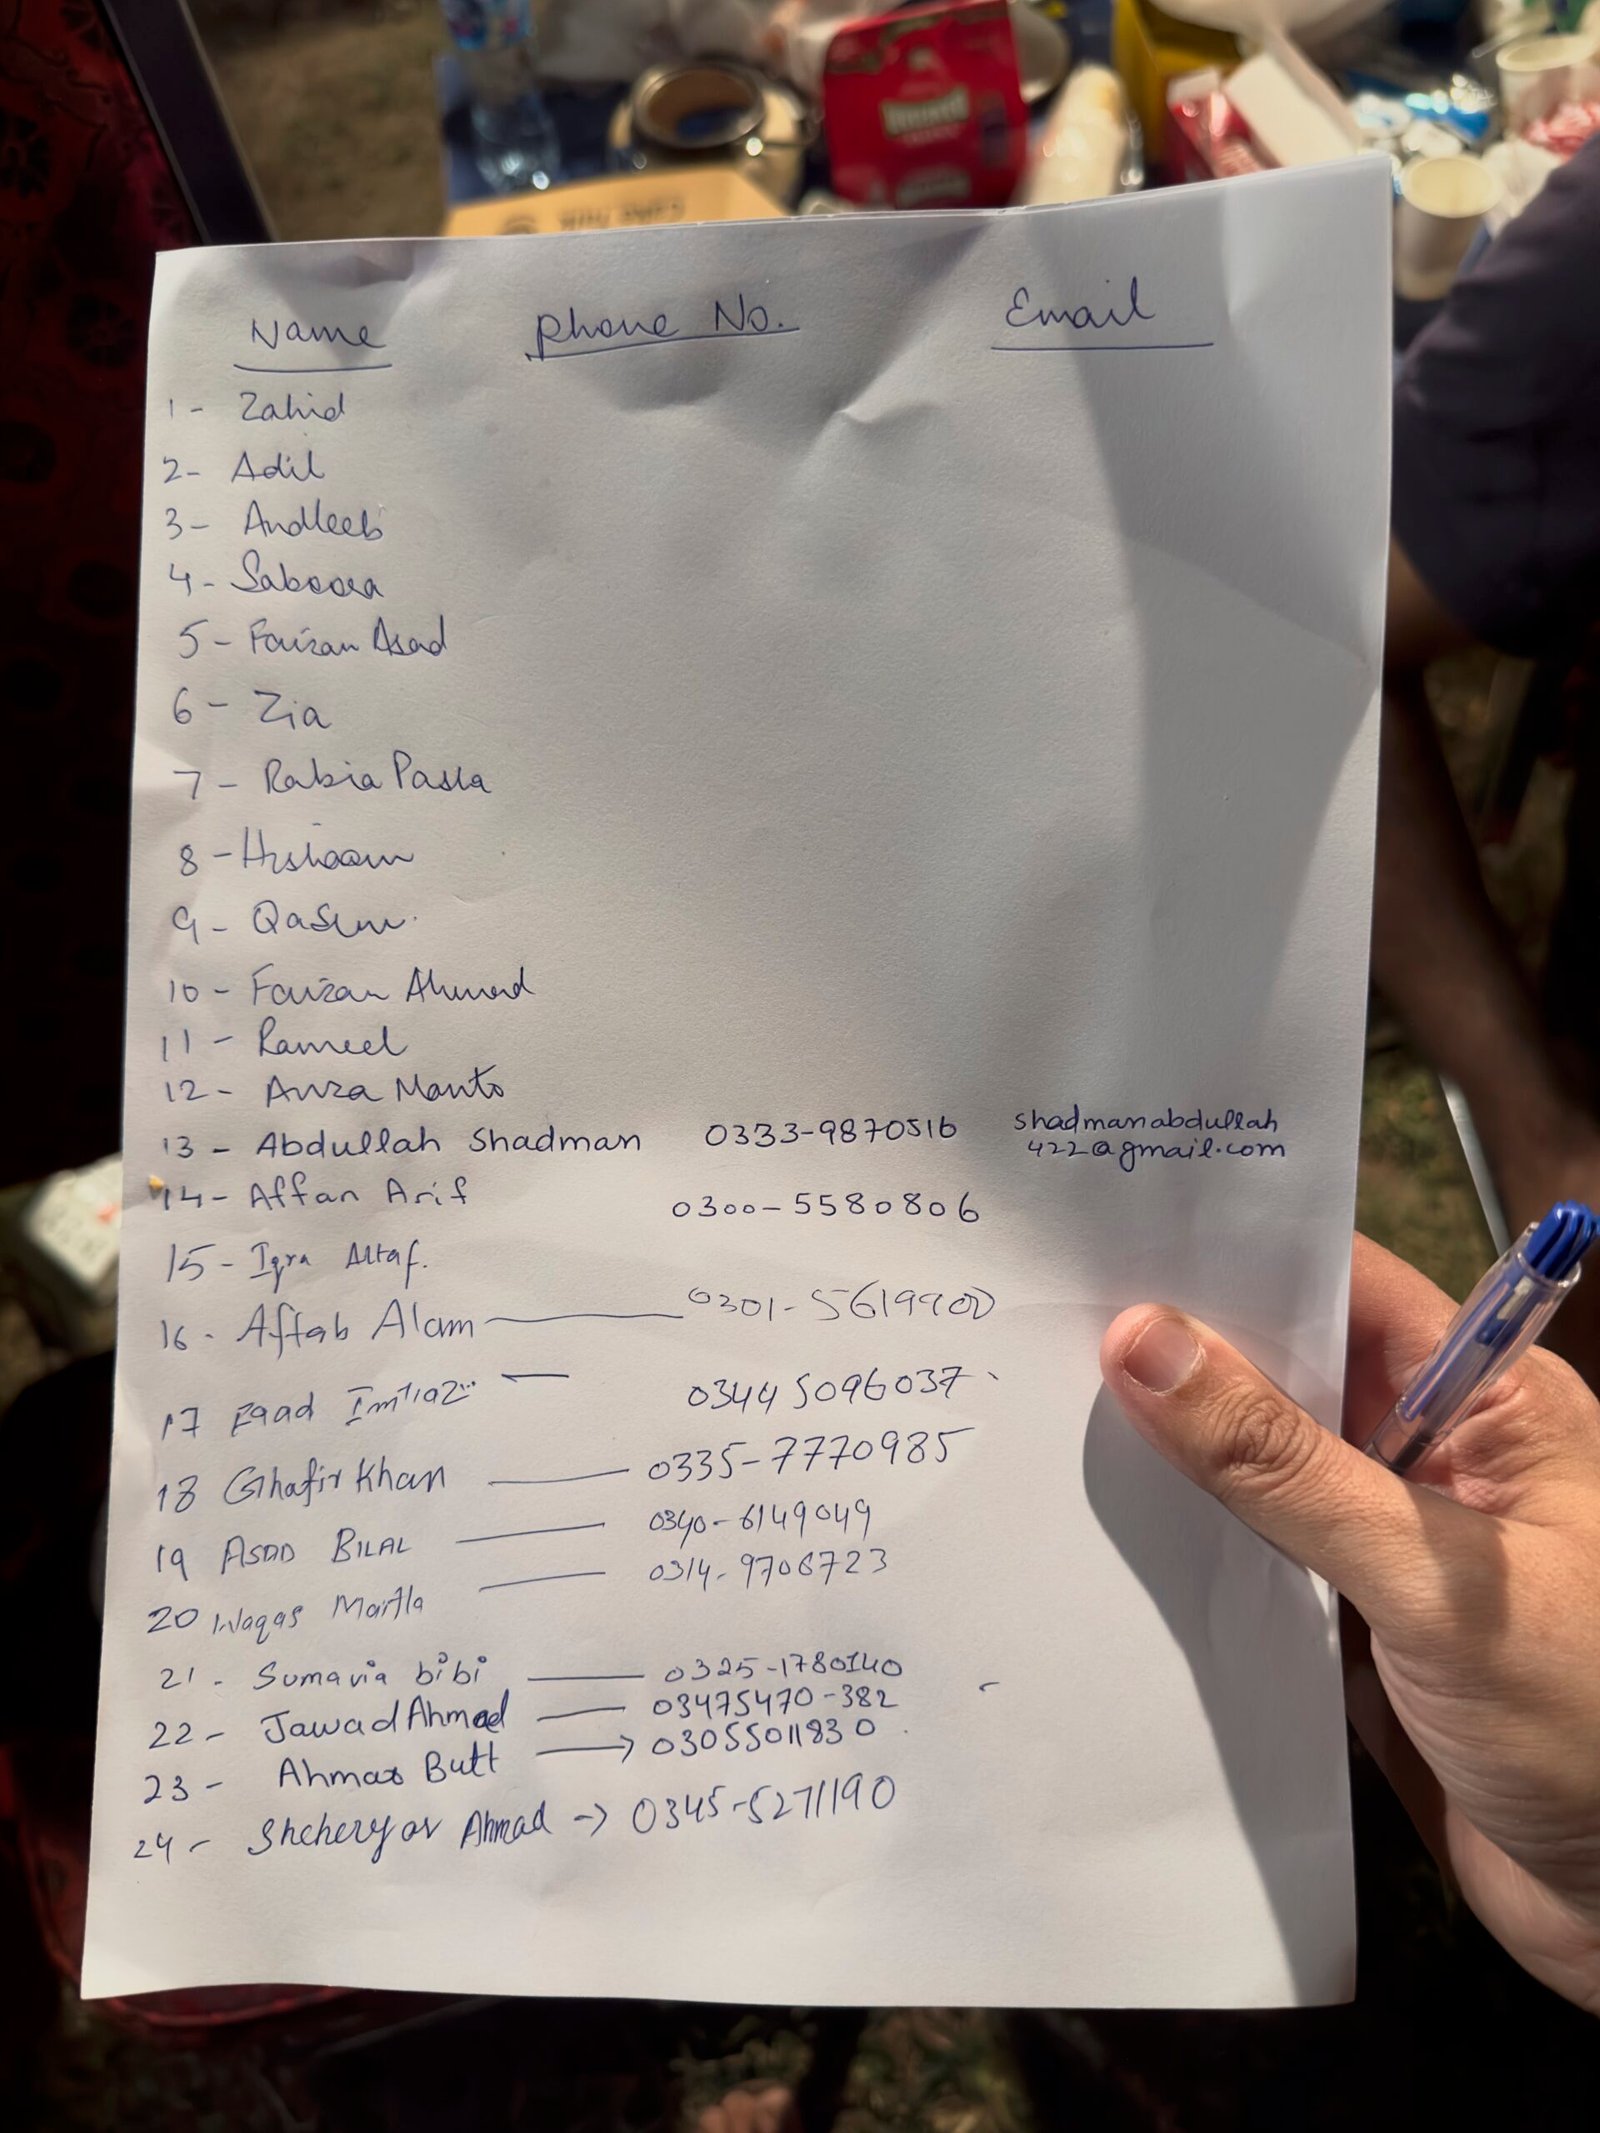 Name Phone No. Email
1- Zahid
2- Adil
3- Andleeb
4- Saboora
5- Faizan Asad
6- Zia
7- Rabia Pasha
8- Hishaam
9- Qasim.
10- Faizan Ahmad
11- Rameel
12- Anza Manto
13- Abdullah Shadman 0333-9870516 shadmanabdullah
422@gmail.com
14- Affan Arif 0300-5580806
15- Iqra Altaf.
16- Aftab Alam — 0301-5619900
17 Imtiaz — 03445096037
18 Ghafir Khan — 0335-7770985
19 ASAD BILAL — 0340-6149049
20 Waqas — 0314-9706723
21- Sumavia bibi — 0325-1780140
22- Jawad Ahmad — 03475470-382
23- Ahmar Butt → 03055011830
24- Shcheryar Ahmad → 0345-5271190